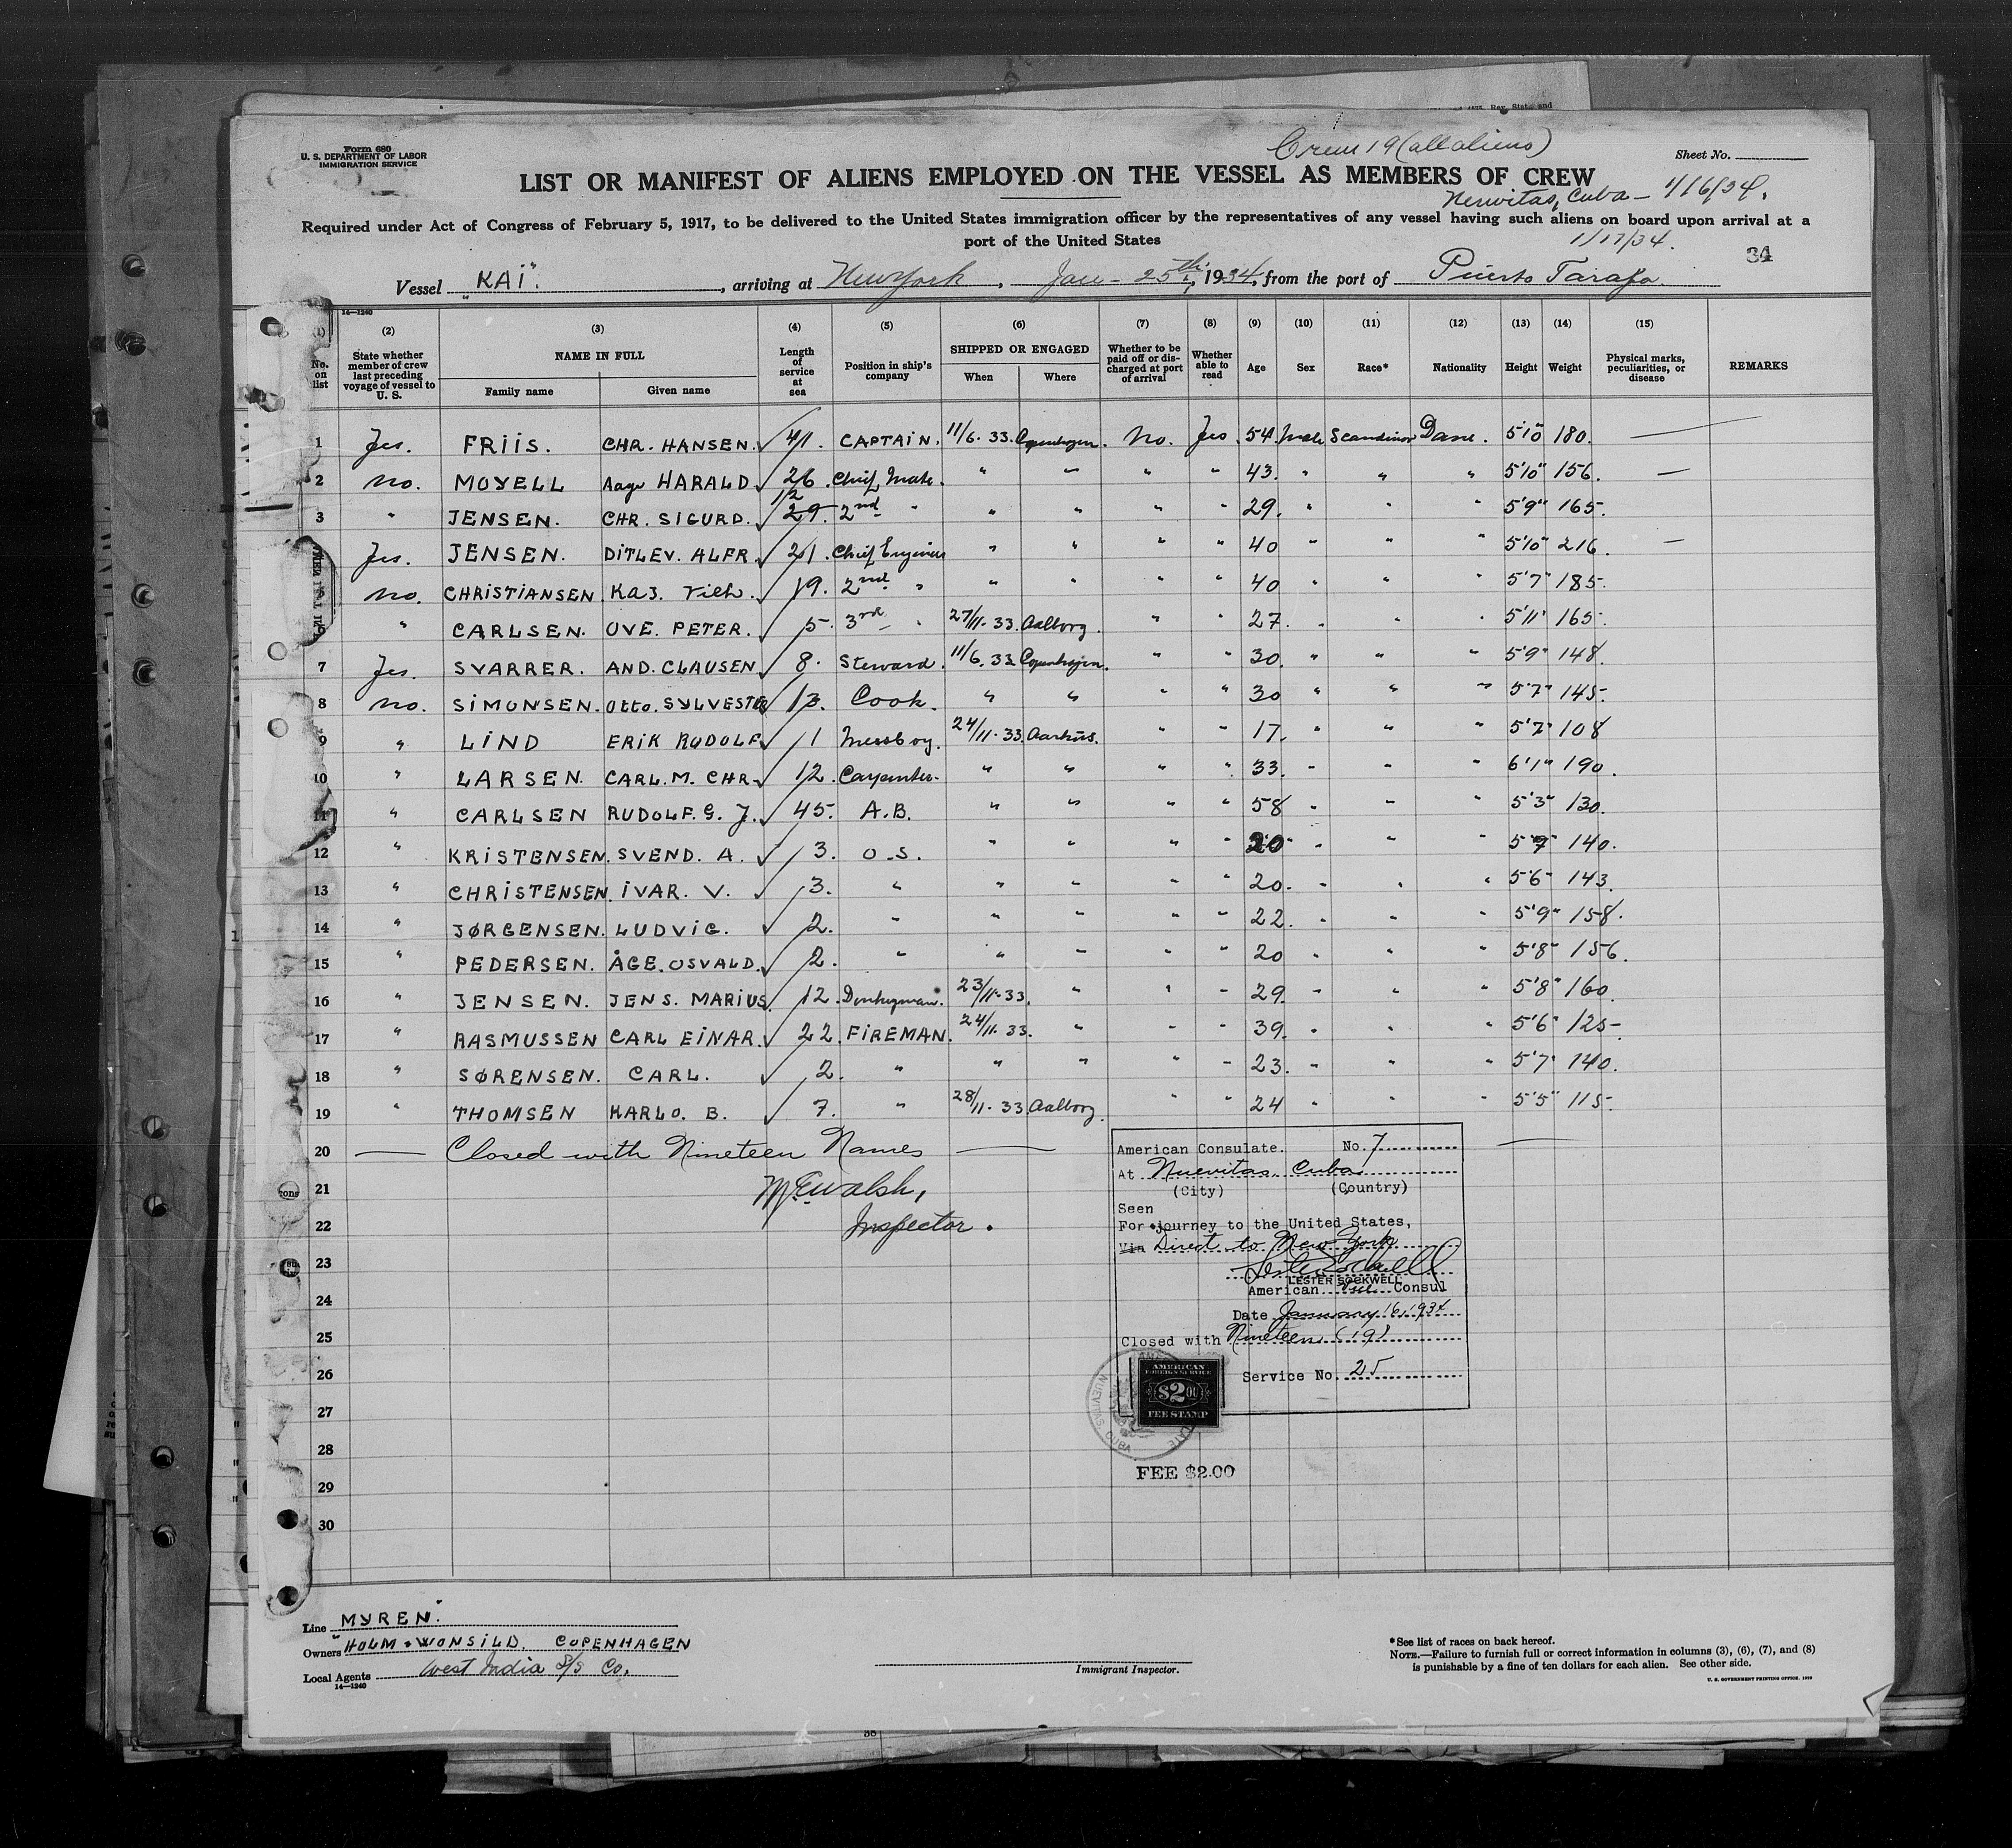 Crew 19 (all aliens)
Form 680
U. S. DEPARTMENT OF LABOR
IMMIGRATION SERVICE
Sheet No.
LIST OR MANIFEST OF ALIENS EMPLOYED ON THE VESSEL AS MEMBERS OF CREW
Nuevitas, Cuba – 1/16/34.
Required under Act of Congress of February 5, 1917, to be delivered to the United States immigration officer by the representatives of any vessel having such aliens on board upon arrival at a
port of the United States
1/17/34.
34
Vessel "KAI". , arriving at New York , Jan – 25th , 1934, from the port of Puerto Tarafa
14—1240
(1) (2) (3) (4) (5) (6) (7) (8) (9) (10) (11) (12) (13) (14) (15)
No. on list
State whether member of crew last preceding voyage of vessel to U. S.
NAME IN FULL
Family name Given name
Length of service at sea
Position in ship's company
SHIPPED OR ENGAGED
When Where
Whether to be paid off or discharged at port of arrival
Whether able to read
Age Sex Race* Nationality Height Weight
Physical marks, peculiarities, or disease
REMARKS
1 Yes. FRIIS. CHR. HANSEN. ✓ 41. CAPTAIN. 11/6. 33. Copenhagen. No. Yes. 54. Male Scandinav Dane. 5'10" 180. —
2 No. MOYELL Aage HARALD ✓ 26. Chief Mate. " " " " 43. " " " 5'10" 156. —
3 " JENSEN. CHR. SIGURD. ✓ 12 29. 2nd " " " " " 29. " " " 5'9" 165.
Yes. JENSEN. DITLEV. ALFR. ✓ 21. Chief Engineer " " " " 40 " " " 5'10" 216. —
No. CHRISTIANSEN Kaj. Vilh. ✓ 19. 2nd " " " " " 40 " " " 5'7" 185.
" CARLSEN. OVE. PETER. ✓ 5. 3rd " 27/11. 33. Aalborg. " " 27. " " " 5'11" 165.
7 Yes. SVARRER. AND. CLAUSEN ✓ 8. Steward. 11/6. 33 Copenhagen. " " 30. " " " 5'9" 148.
8 No. SIMONSEN. Otto. SYLVESTER ✓ 13. Cook. " " " " 30 " " " 5'7" 145.
9 " LIND ERIK RUDOLF ✓ 1 Messboy. 24/11. 33. Aarhus. " " 17. " " " 5'7" 108
10 " LARSEN. CARL. M. CHR. ✓ 12. Carpenter. " " " " 33. " " " 6'1" 190.
11 " CARLSEN RUDOLF. G. J. ✓ 45. A.B. " " " " 58 " " " 5'3" 130.
12 " KRISTENSEN. SVEND. A. ✓ 3. O.S. " " " " 20 " " " 5'7" 140.
13 " CHRISTENSEN. IVAR. V. ✓ 3. " " " " " 20. " " " 5'6" 143.
14 " JØRGENSEN. LUDVIG. ✓ 2. " " " " " 22. " " " 5'9" 158.
15 " PEDERSEN. ÅGE. OSVALD. ✓ 2. " " " " " 20 " " " 5'8" 156.
16 " JENSEN. JENS. MARIUS ✓ 12. Donkeyman. 23/11. 33. " " " 29. " " " 5'8" 160.
17 " RASMUSSEN CARL EINAR. ✓ 22. FIREMAN. 24/11. 33. " " " 39. " " " 5'6" 125–
18 " SØRENSEN. CARL. ✓ 2. " " " " " 23. " " " 5'7" 140.
19 " THOMSEN KARLO. B. ✓ 7. " 28/11. 33. Aalborg. " " 24 " " " 5'5" 115.
20 — Closed with Nineteen Names —
21 M E Walsh,
22 Inspector.
23
24
25
26
27
28
29
30
American Consulate. No. 7
At Nuevitas, Cuba
(City) (Country)
Seen
For journey to the United States,
Via Direct to New York
LESTER SCHWELL
American Vice Consul
Date January 16, 1934
Closed with Nineteen (19)
Service No. 25
AMERICAN
FOREIGN SERVICE
$2.00
FEE STAMP
NUEVITAS, CUBA
FEE $2.00
Line "MYREN".
Owners "HOLM & WONSILD, COPENHAGEN
Local Agents West India S/S Co.
14—1240
Immigrant Inspector.
*See list of races on back hereof.
NOTE.—Failure to furnish full or correct information in columns (3), (6), (7), and (8)
is punishable by a fine of ten dollars for each alien. See other side.
U. S. GOVERNMENT PRINTING OFFICE. 1929